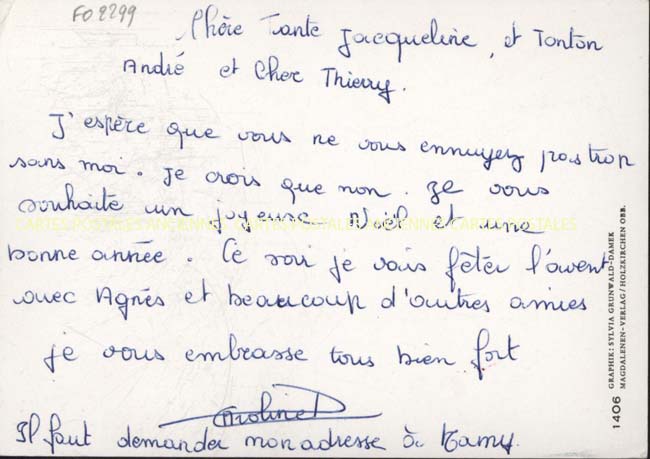 FO 2299
Chère Tante Jacqueline, et Tonton
André et Cher Thierry.
J'espère que vous ne vous ennuyez pas trop
sans moi. Je crois que non. Je vous
souhaite un joyeuse Noël et une
CARTES POSTALES ANCIENNES CARTES POSTALES ANCIENNES CARTES POSTALES
bonne année. Ce soir je vais fêter l'avent
avec Agnés et beaucoup d'autres amies
je vous embrasse tous bien fort
Caroline D
Il faut demander mon adresse à Mamy.
1406 GRAPHIK: SYLVIA GRUNWALD-DAMEK
MAGDALENEN-VERLAG/HOLZKIRCHEN OBB.